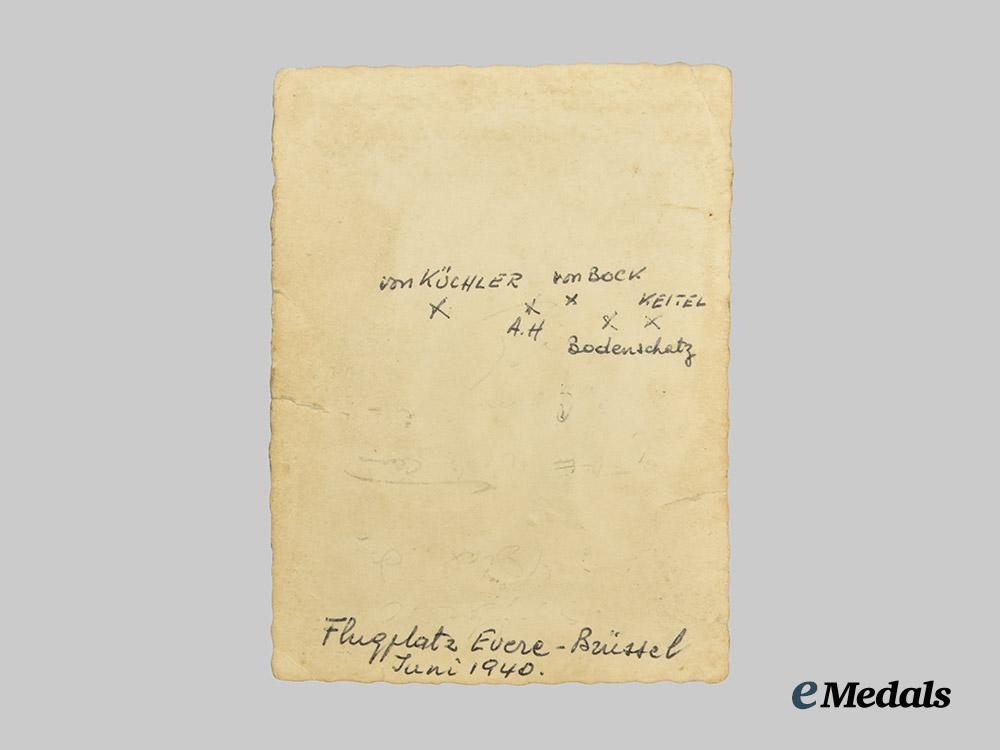 von KÜCHLER von BOCK
X X X KEITEL
A.H X X
Bodenschatz
Flugplatz Evere - Brüssel
Juni 1940.
eMedals